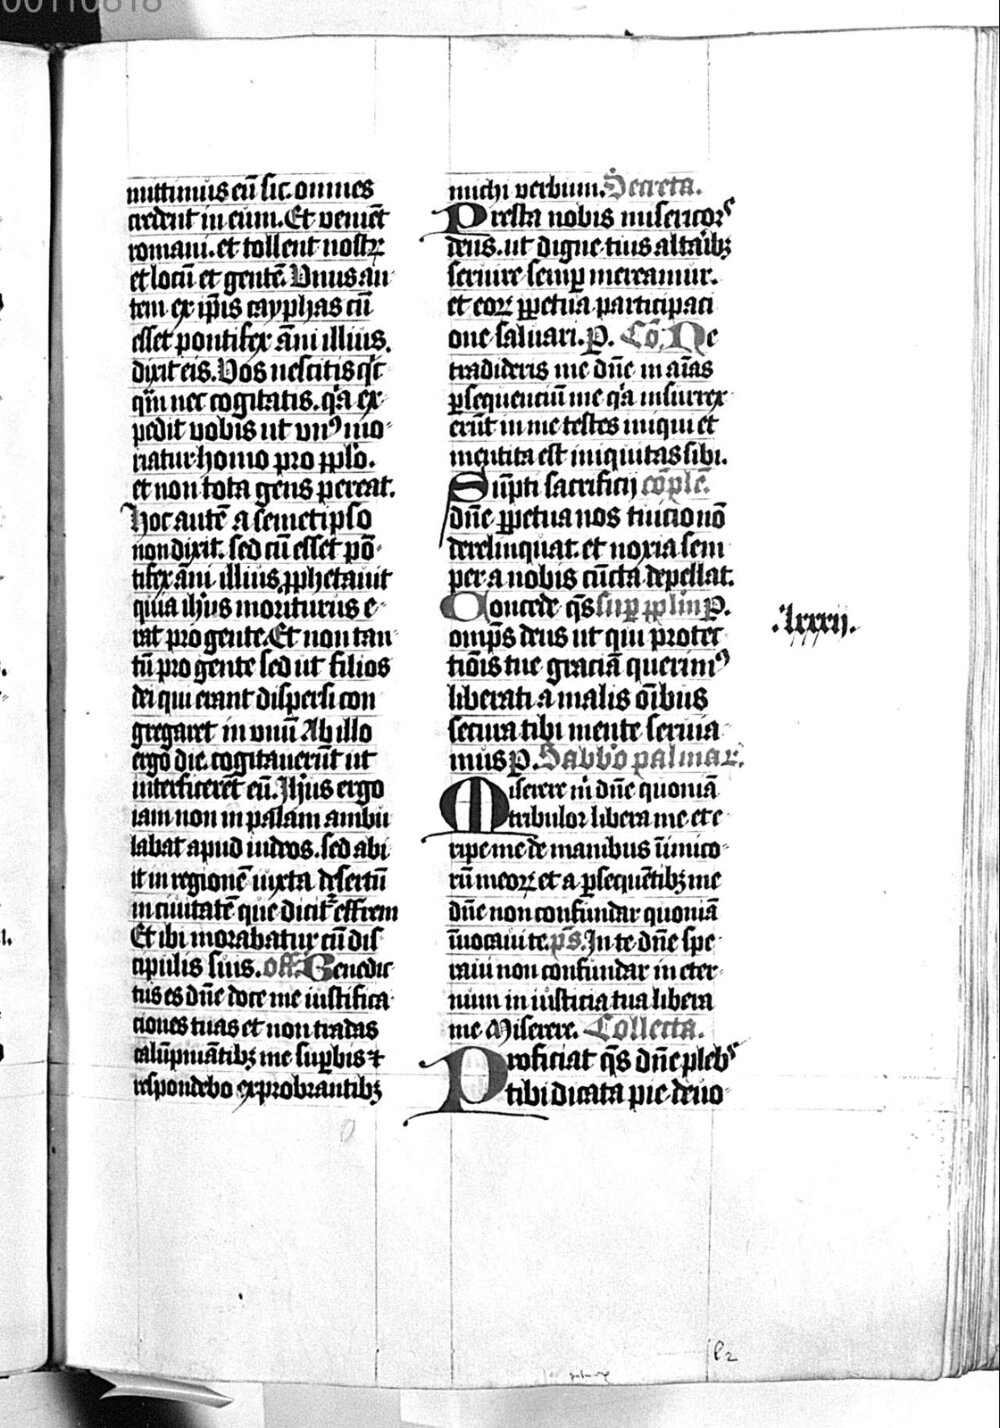 mittimus eū sic. omnes
credent in eum. Et veniēt
romani. et tollent nostꝝ
et locū et gentē. Vnus au
tem ex ip̄is cayphas cū
esset pontifex āni illius.
dixit eis. Vos nescitis qͥc
qͣm nec cogitatis. qͥa ex
pedit vobis ut vnꝰ mo
riatur homo pro pp̄lo.
et non tota gens pereat.
Hoc autē a semetipso
non dixit. sed cū esset pō
tifex āni illius ꝓphetauit
quia ihūs moriturus e
rat pro gente. Et non tan
tū pro gente sed ut filios
dei qui erant dispersi con
gregaret in vnū Ab illo
ergo die. cogitauerūt ut
interficerēt eū. Ihūs ergo
iam non in palam ambu
labat apud iudeos. sed abi
it in regionē iuxta desertū
in ciuitatē que dicit᷑ effrem
Et ibi morabatur cū dis
cipulis suis. off. Benedic
tus es dn̄e doce me iustifica
ciones tuas et non tradas
calūpniātibꝫ me suꝑbis ⁊
respondebo exprobrantibꝫ
michi verbum. Secreta.
Presta nobis misericorˢ
deus. ut digne tuis altaribꝫ
seruire semꝑ mereamur.
et eoꝝ ꝑpetua participaci
one saluari. P. Cō. Ne
tradideris me dn̄e in aīas
ꝑsequenciū me qͥa insurrex
erūt in me testes iniqui et
mentita est iniquitas sibi.
Sūpti sacrificij cōplē.
dn̄e ꝑpetua nos tuicio nō
derelinquat. et noxia sem
per a nobis cūcta depellat.
Concede qs̄ suꝑ pplm̄ P.
omp̄s deus ut qui protec
tiōis tue graciā querimꝰ
liberati a malis oībus
secura tibi mente seruia
mus P. Sabbo palmaꝝ.
.lxxxij.
Miserere m̄ dn̄e quoniā
tribulor libera me et e
ripe me de manibus inimico
rū meoꝝ et a ꝑsequētibꝫ me
dn̄e non confundar quoniā
inuocaui te ps̄. In te dn̄e spe
raui non confundar in eter
num in iusticia tua libera
me Miserere. Collecta.
Proficiat qs̄ dn̄e plebˢ
tibi dicata pie deuo